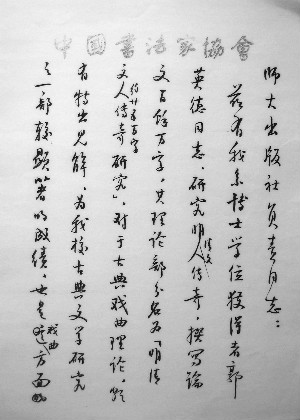 中國書法家協會
师大出版社负责同志：
兹有我系博士学位获得者郭
英德同志，研究明清文人传奇，撰写论
文百余万字，其理论部分名为「明清
文人传奇研究」，对于古典戏曲理论，颇
有特出见解，为我校古典文学研究
之一部较显著的成绩，也是戏曲方面的